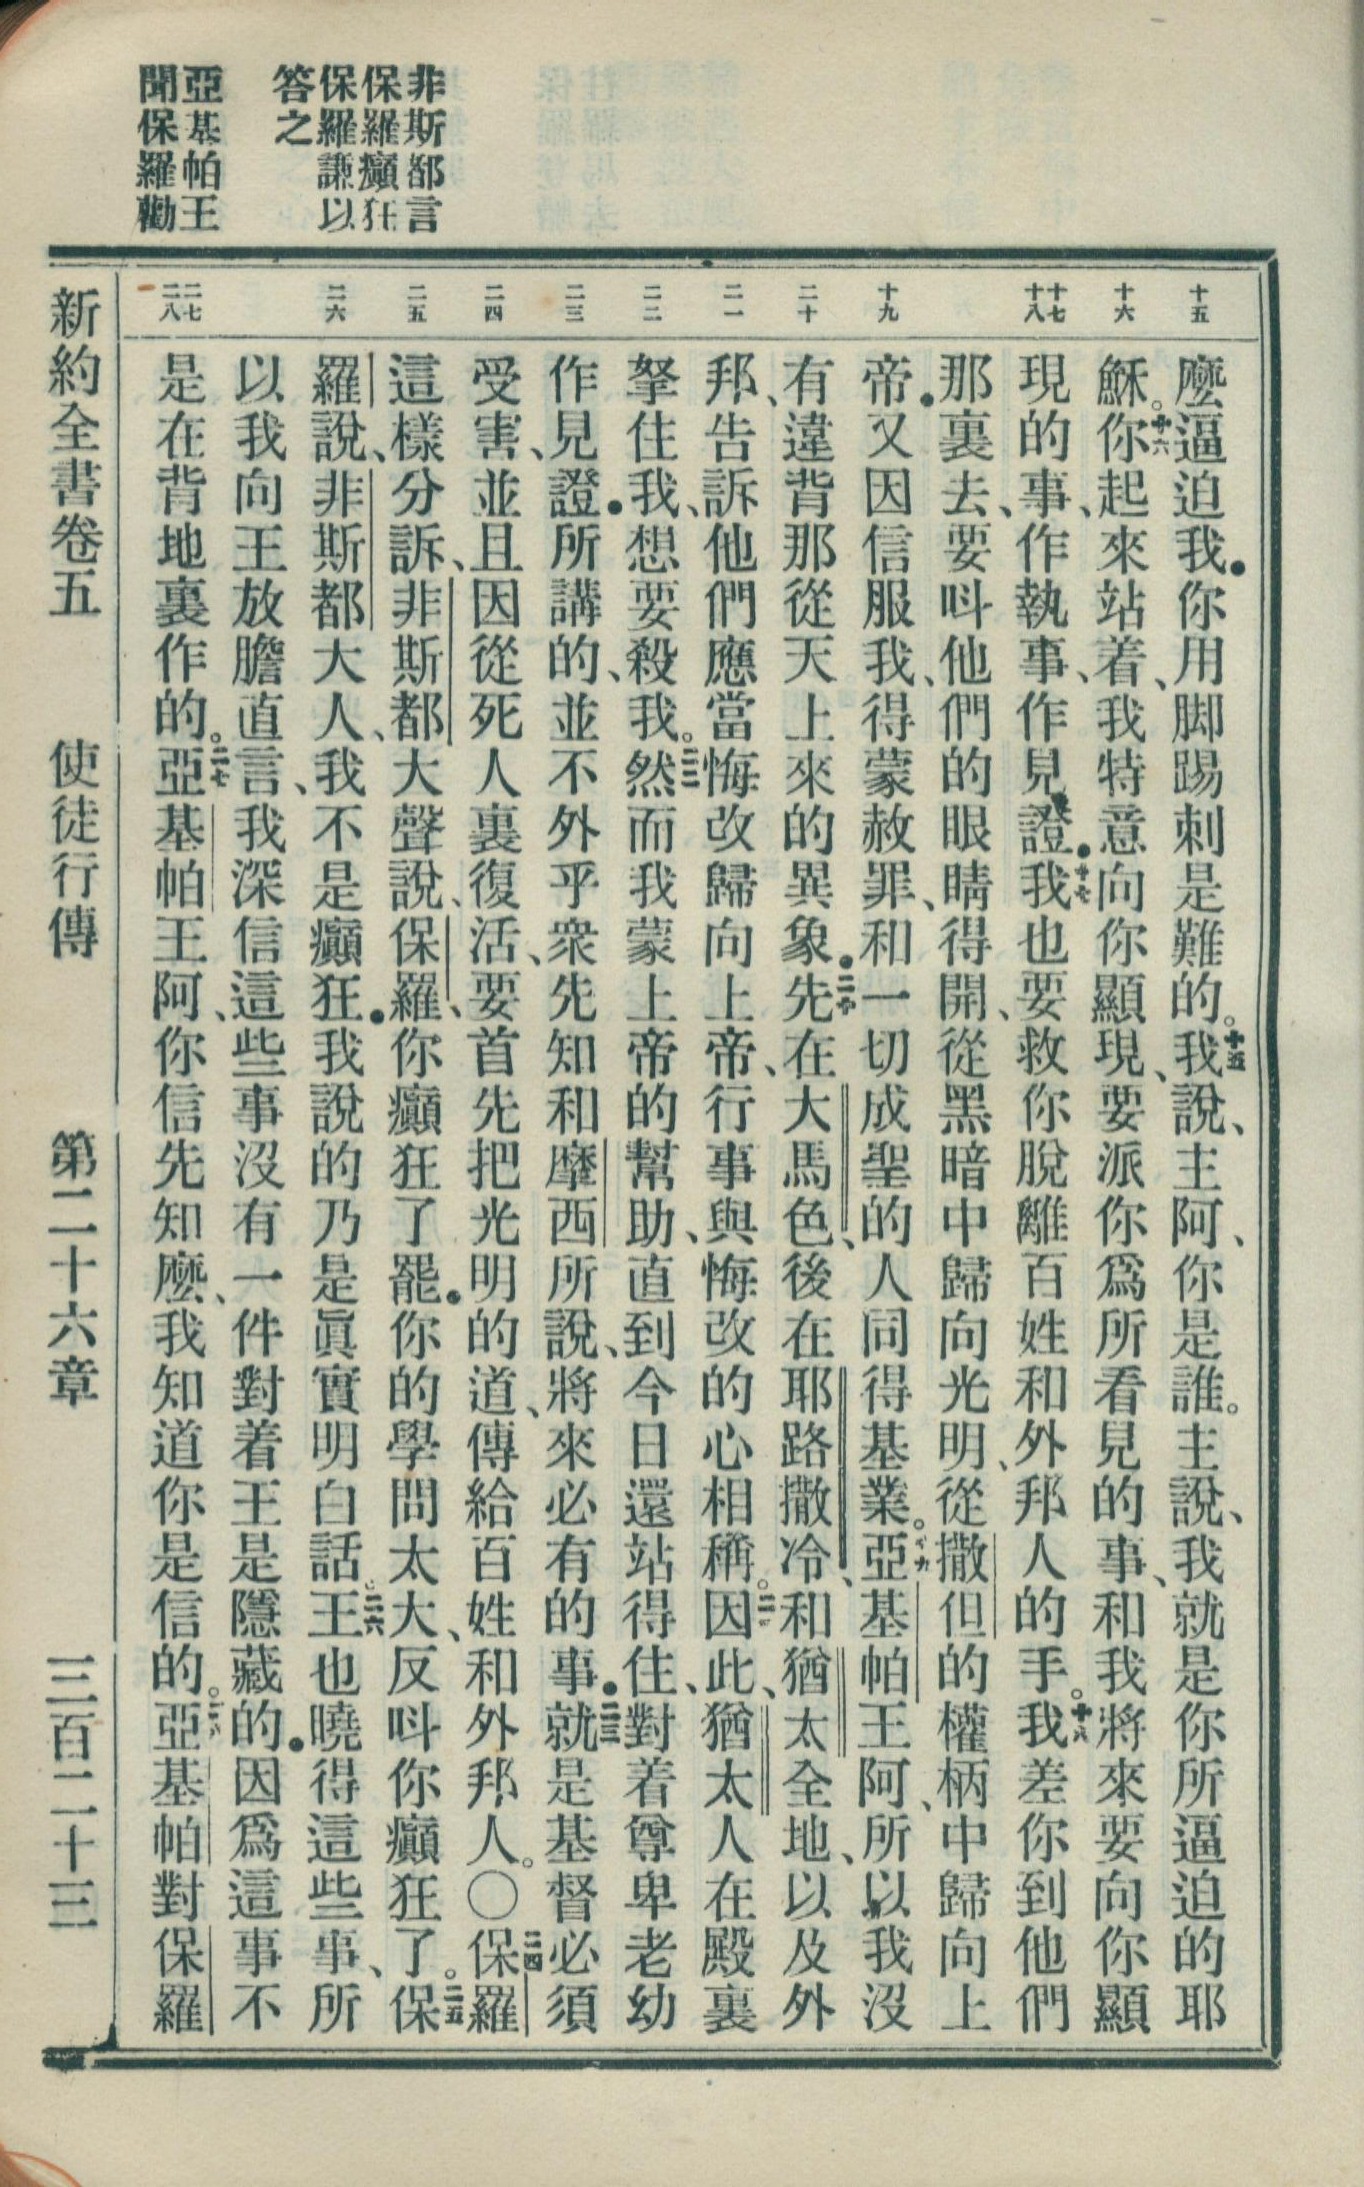 非斯都言
保羅癲狂
保羅謙以
答之
亞基帕王
聞保羅勸
十五
十六
十七
十八
十九
二十
二一
二二
二三
二四
二五
二六
二七
二八
麽逼迫我．你用脚踢刺是難的。十五我說、主阿、你是誰。主說、我就是你所逼迫的耶
穌。十六你起來站着、我特意向你顯現、要派你爲所看見的事、和我將來要向你顯
現的事、作執事、作見證．十七我也要救你脫離百姓和外邦人的手。十八我差你到他們
那裏去、要呌他們的眼睛得開、從黑暗中歸向光明、從撒但的權柄中歸向上
帝．又因信服我、得蒙赦罪、和一切成聖的人同得基業。十九亞基帕王阿、所以我沒
有違背那從天上來的異象．二十先在大馬色、後在耶路撒冷、和猶太全地、以及外
邦、告訴他們應當悔改歸向上帝、行事與悔改的心相稱。二一因此、猶太人在殿裏
拏住我、想要殺我。二二然而我蒙上帝的幫助、直到今日還站得住、對着尊卑老幼
作見證．所講的、並不外乎衆先知和摩西所說、將來必有的事．二三就是基督必須
受害、並且因從死人裏復活、要首先把光明的道、傳給百姓和外邦人。○二四保羅
這樣分訴、非斯都大聲說、保羅、你癲狂了罷．你的學問太大、反呌你癲狂了。二五保
羅說、非斯都大人、我不是癲狂．我說的乃是眞實明白話。二六王也曉得這些事、所
以我向王放膽直言、我深信這些事沒有一件對着王是隱藏的．因爲這事不
是在背地裏作的。二七亞基帕王阿、你信先知麽、我知道你是信的。二八亞基帕對保羅
新約全書卷五　使徒行傳　第二十六章　三百二十三